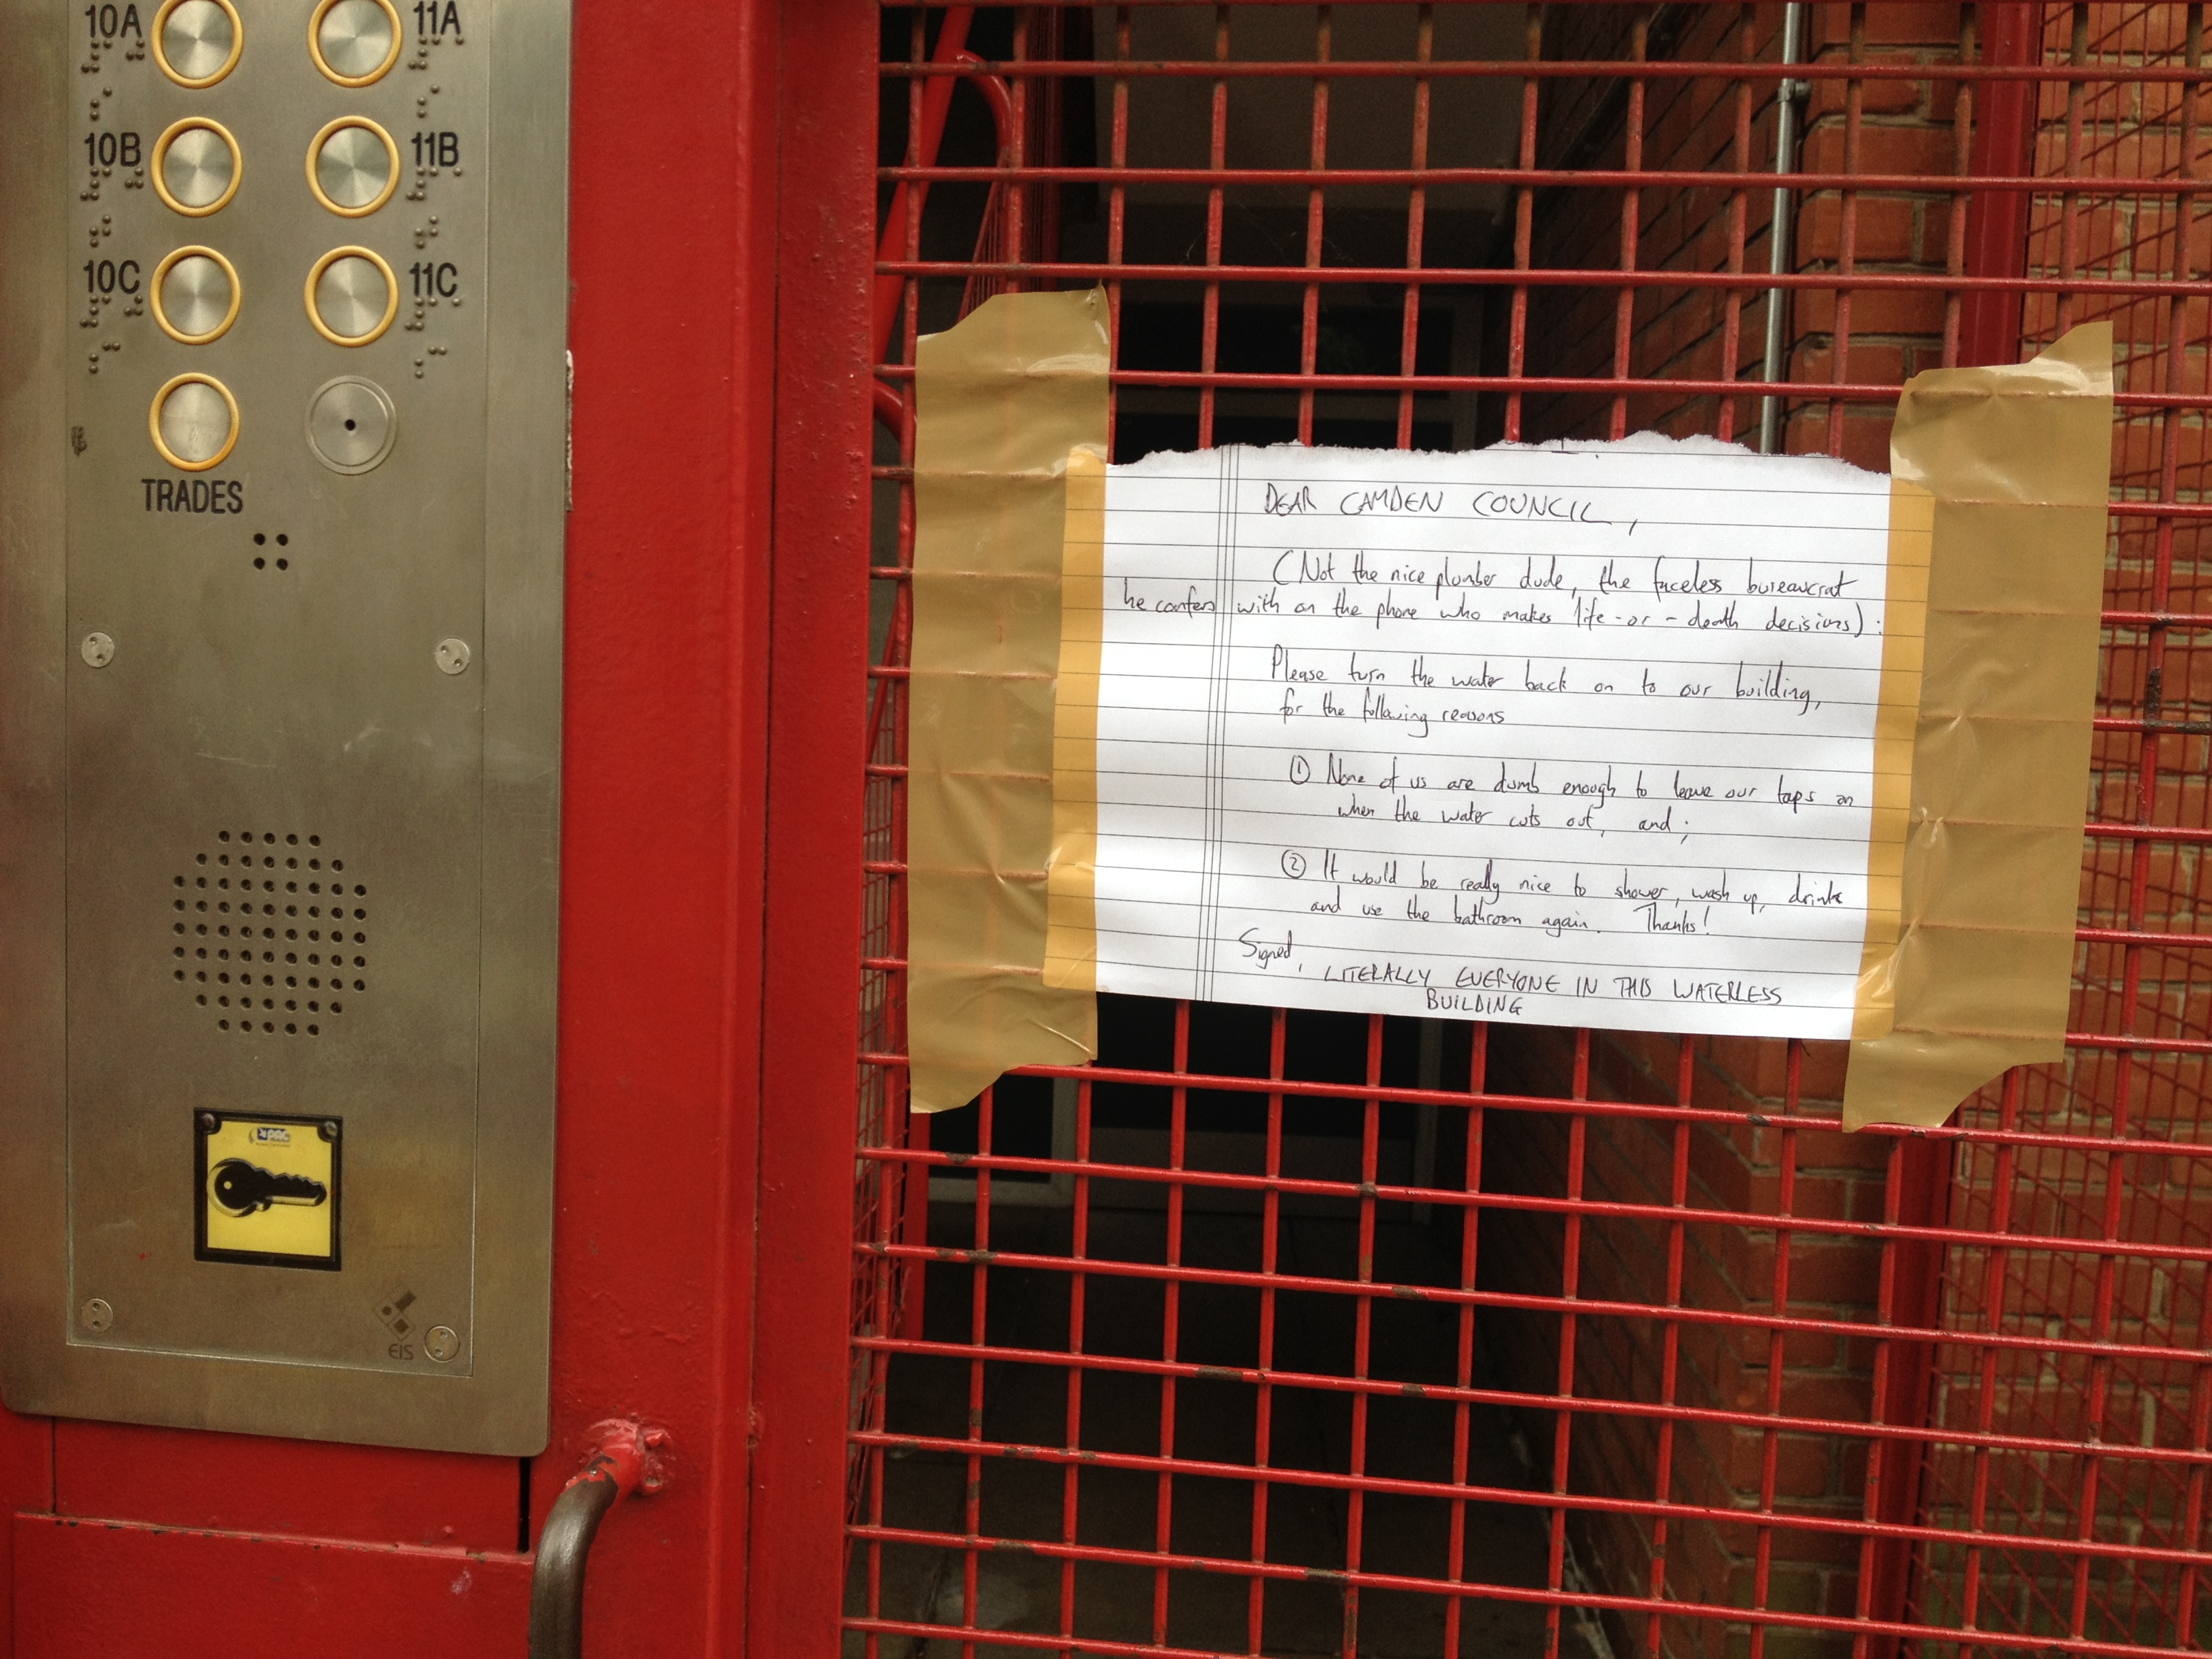 10A 11A
10B 11B
10C 11C
TRADES
EIS
DEAR CAMDEN COUNCIL,
(Not the nice plumber dude, the faceless bureaucrat
he confers with on the phone who makes life-or-death decisions):
Please turn the water back on to our building,
for the following reasons
① None of us are dumb enough to leave our taps on
when the water cuts out, and;
② It would be really nice to shower, wash up, drink
and use the bathroom again. Thanks!
Signed,
LITERALLY EVERYONE IN THIS WATERLESS
BUILDING